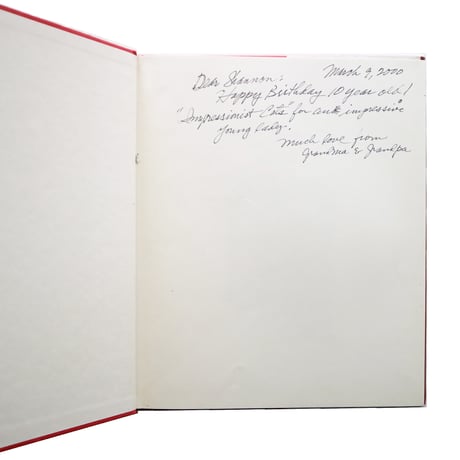 March 9, 2020
Dear Shannon:
Happy Birthday 10 year old!
"Impressionist Cats" for an impressive
young lady.
Much love from
Grandma & Grandpa